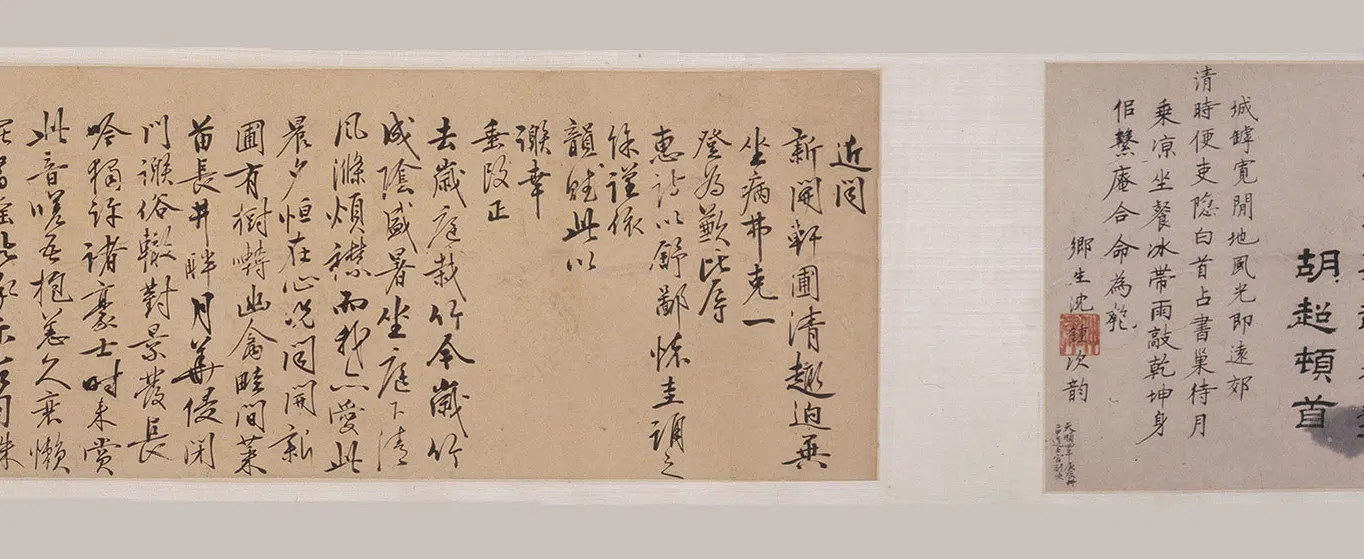 胡超頓首
城罅寬閒地風光即遠郊
清時便吏隐白首占書巢待月
乘凉坐餐冰帶雨敲乾坤身
但繫庵合命為匏
鄉生沈鍾次韵
近聞
新開軒圃清趣迥異
坐病弗克一
登為歉比辱
惠詩以舒鄙懷圭誦之
餘謹依
韻賦此以
謝幸
垂改正
去歲庭栽竹今歲竹
成陰盛暑坐庭下清
風滌煩襟而我亦愛此
晨夕恒在心况聞開新
圃有樹囀幽禽畦間菜
苗長井畔月華侵閉
門謝俗轍對景發長
吟獨許諸豪士時來賞
此音嗟吾抱恙久衰懶